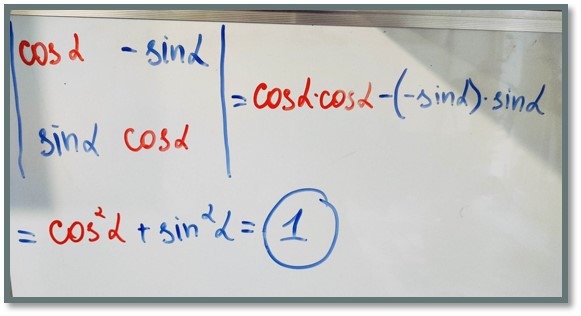 | cosα -sinα |
| sinα cosα | = cosα·cosα-(-sinα)·sinα
= cos²α + sin²α = 1